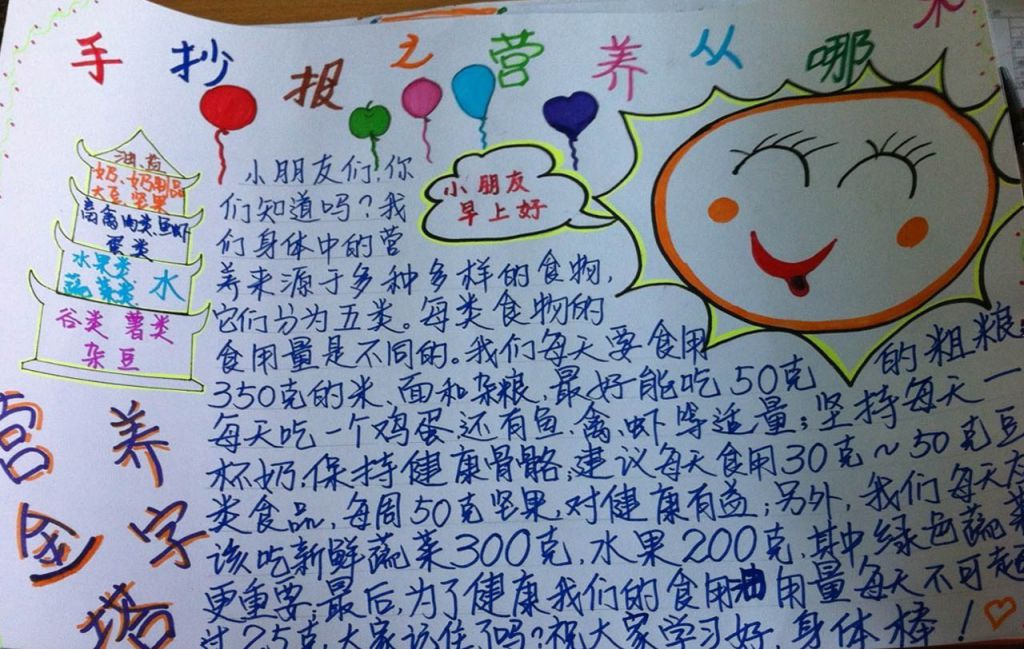 手抄报之营养从哪来
油
奶、奶制品
大豆坚果
畜禽肉类、鱼虾
蛋类
水果类
蔬菜类 水
谷类 薯类
杂豆
营养
金字
塔
小朋友
早上好
小朋友们!你
们知道吗?我
们身体中的营
养来源于多种多样的食物,
它们分为五类。每类食物的
食用量是不同的。我们每天要食用
350克的米、面和杂粮,最好能吃50克 的粗粮;
每天吃一个鸡蛋,还有鱼、禽、虾等适量;坚持每天一
杯奶,保持健康骨骼;建议每天食用30克~50克豆
类食品,每周50克坚果,对健康有益;另外,我们每天应
该吃新鲜蔬菜300克,水果200克,其中,绿色蔬菜
更重要;最后,为了健康我们的食用油用量每天不可超
过25克,大家记住了吗?祝大家学习好,身体棒!